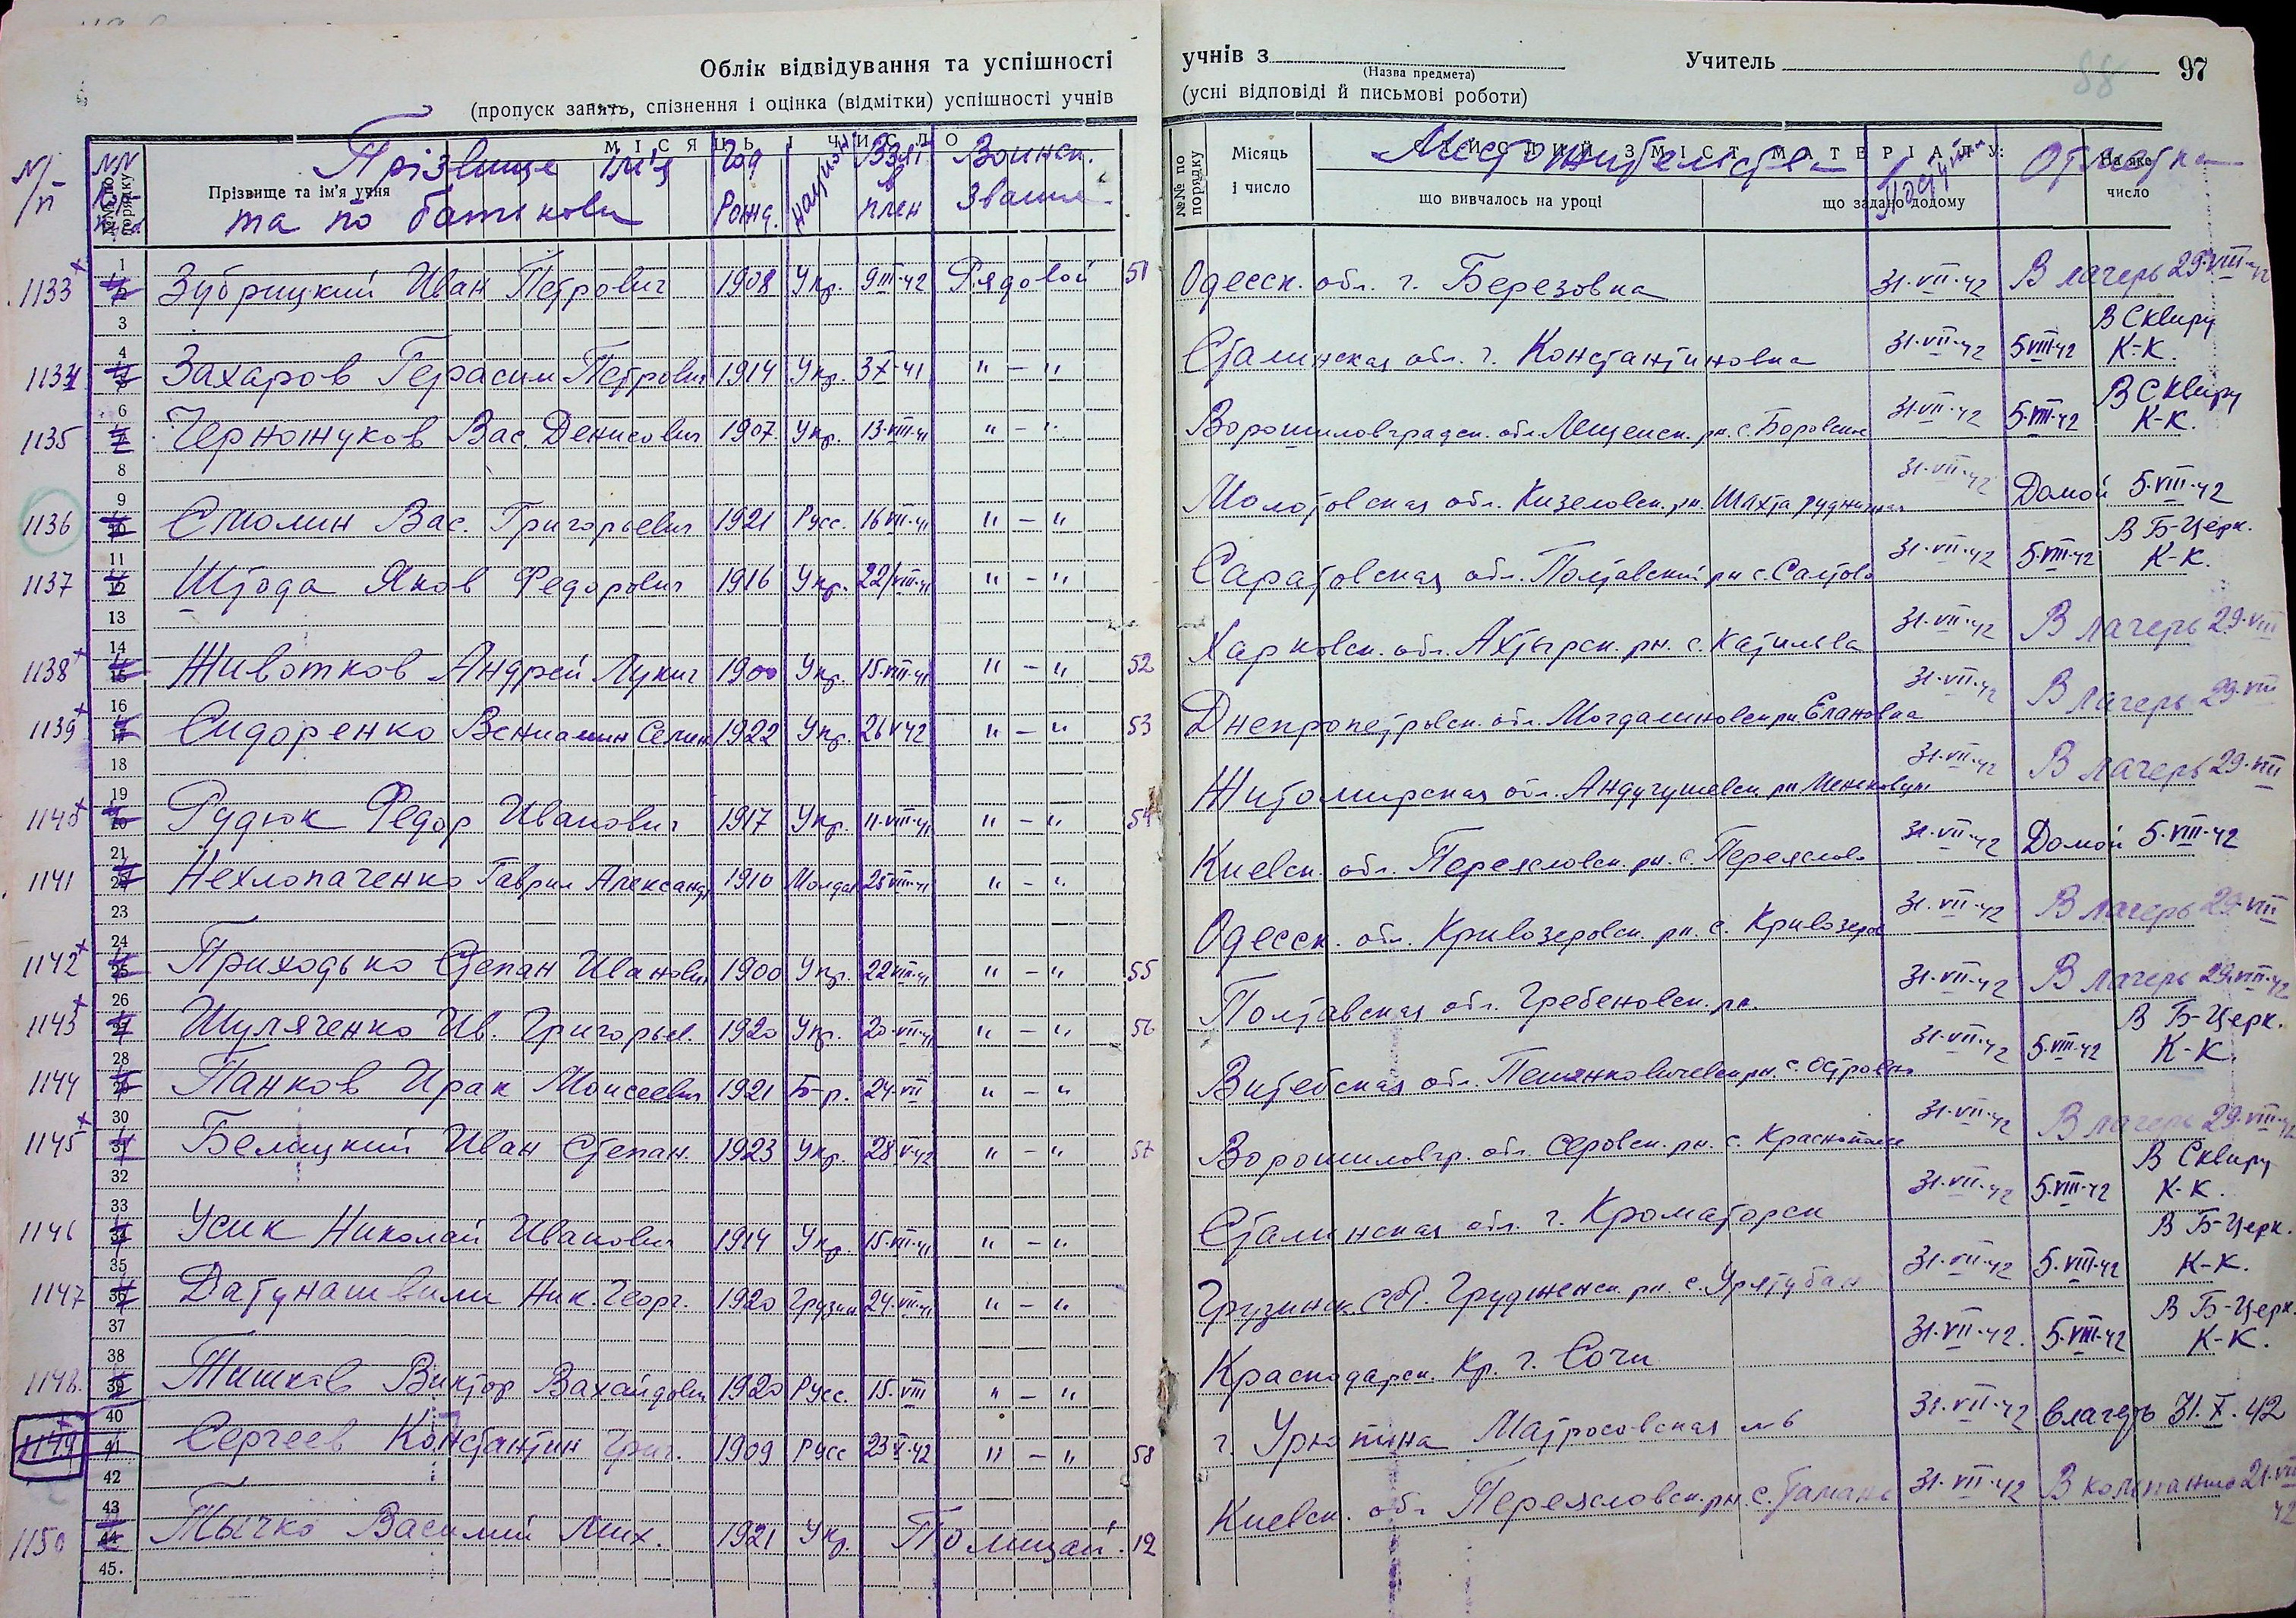 Облік відвідування та успішності учнів з (Назва предмета) Учитель 97
88
(пропуск занять, спізнення і оцінка (відмітки) успішності учнів (усні відповіді й письмові роботи)
МІСЯЦЬ І ЧИСЛО
№№ по порядку Прізвище та ім'я учня
№№ по порядку Місяць і число СТИСЛИЙ ЗМІСТ МАТЕРІАЛУ: що вивчалось на уроці що задано додому На яке число
N/п NN Прізвище ім'я та по батькові Год Рожд. национ Взят в плен Воинск. звание Местожительства Поступил Отметка
1133 Зубрицкий Иван Петрович 1908 Укр. 9 III 42 Рядовой 51 Одесск. обл. г. Березовка 31·VII·42 В лагерь 29·VIII·42
1134 Захаров Герасим Петрович 1914 Укр. 3 X·41 " — " Сталинская обл. г. Константиновка 31·VII·42 5 VIII·42 В Сквиру К-К.
1135 Черножуков Вас. Денисович 1907 Укр. 13·VIII·41 " — " Ворошиловградск. обл. рн. с. Боровское 31·VII·42 5·VIII·42 В Сквиру К-К.
1136 Смолин Вас. Григорьевич 1921 Русс. 16 VII·41 " — " Молотовская обл. Кизеловск. рн. Шахта 31·VII·42 Домой 5·VIII·42
1137 Штода Яков Федорович 1916 Укр. 22/VIII·41 " — " Саратовская обл. Полтавский рн с. Салтово 31·VII·42 5·VIII·42 В Б-Церк. К-К.
1138 Животков Андрей Лукич 1900 Укр. 15·VIII·41 " — " 52 Харковск. обл. Ахтырск. рн. с. Катильва 31·VII·42 В лагерь 29·VIII
1139 Сидоренко Вениамин Семен 1922 Укр. 26 V 42 " — " 53 Днепропетровск. обл. Могдалиновск рн Елановка 31·VII·42 В лагерь 29·VIII
1140 Рудюк Федор Иванович 1917 Укр. 11·VIII·41 " — " 54 Житомирская обл. Андугушевск рн 31·VII·42 В лагерь 29·VIII
1141 Нехлопаченко Гаврил Александ 1910 Молдав 25 VIII·41 " — " Киевск. обл. Переясловск. рн. с. Переяслов 31·VII·42 Домой 5·VIII·42
1142 Приходько Степан Иванович 1900 Укр. 22 VIII·41 " — " 55 Одесск. обл. Кривозеровск. рн. с. Кривозеров 31·VII·42 В лагерь 29·VIII
1143 Шуляченко Ив. Григорьев. 1920 Укр. 20·VII·41 " — " 56 Полтавская обл. Гребеновск. рн. 31·VII·42 В лагерь 29·VIII·42
1144 Панков Ирак Моисеевич 1921 Б-р. 24·VII " — " Витебская обл. рн. с. Островно 31·VII·42 5·VIII·42 В Б-Церк. К-К.
1145 Белицкий Иван Степан. 1923 Укр. 28 V·42 " — " 57 Ворошиловгр. обл. Серовск. рн. с. 31·VII·42 В лагерь 29·VIII·42
1146 Усик Николай Иванович 1914 Укр. 15·VIII·41 " — " Сталинская обл. г. Кроматорск 31·VII·42 5·VIII·42 В Сквиру К-К.
1147 Датунашвили Ник. Георг. 1920 Грузин 24·VII·41 " — " Грузинск. рн. с. 31·VII·42 5·VIII·42 В Б-Церк. К-К.
1148. Тишков Виктор 1920 Русс. 15·VIII " — " Краснодарск. Кр. г. Сочи 31·VII·42. 5·VIII·42 В Б-Церк. К-К.
1149 Сергеев Константин Григ. 1909 Русс 23 V·42 " — " 58 г. Урюпина Матросовская №6 31·VII·42 В лагерь 31.X.42
1150 Тычко Василий Мих. 1921 Укр. Полицай. 12 Киевск. обл Переясловск. рн с. 31·VII·42 В компанию 21·VIII 42